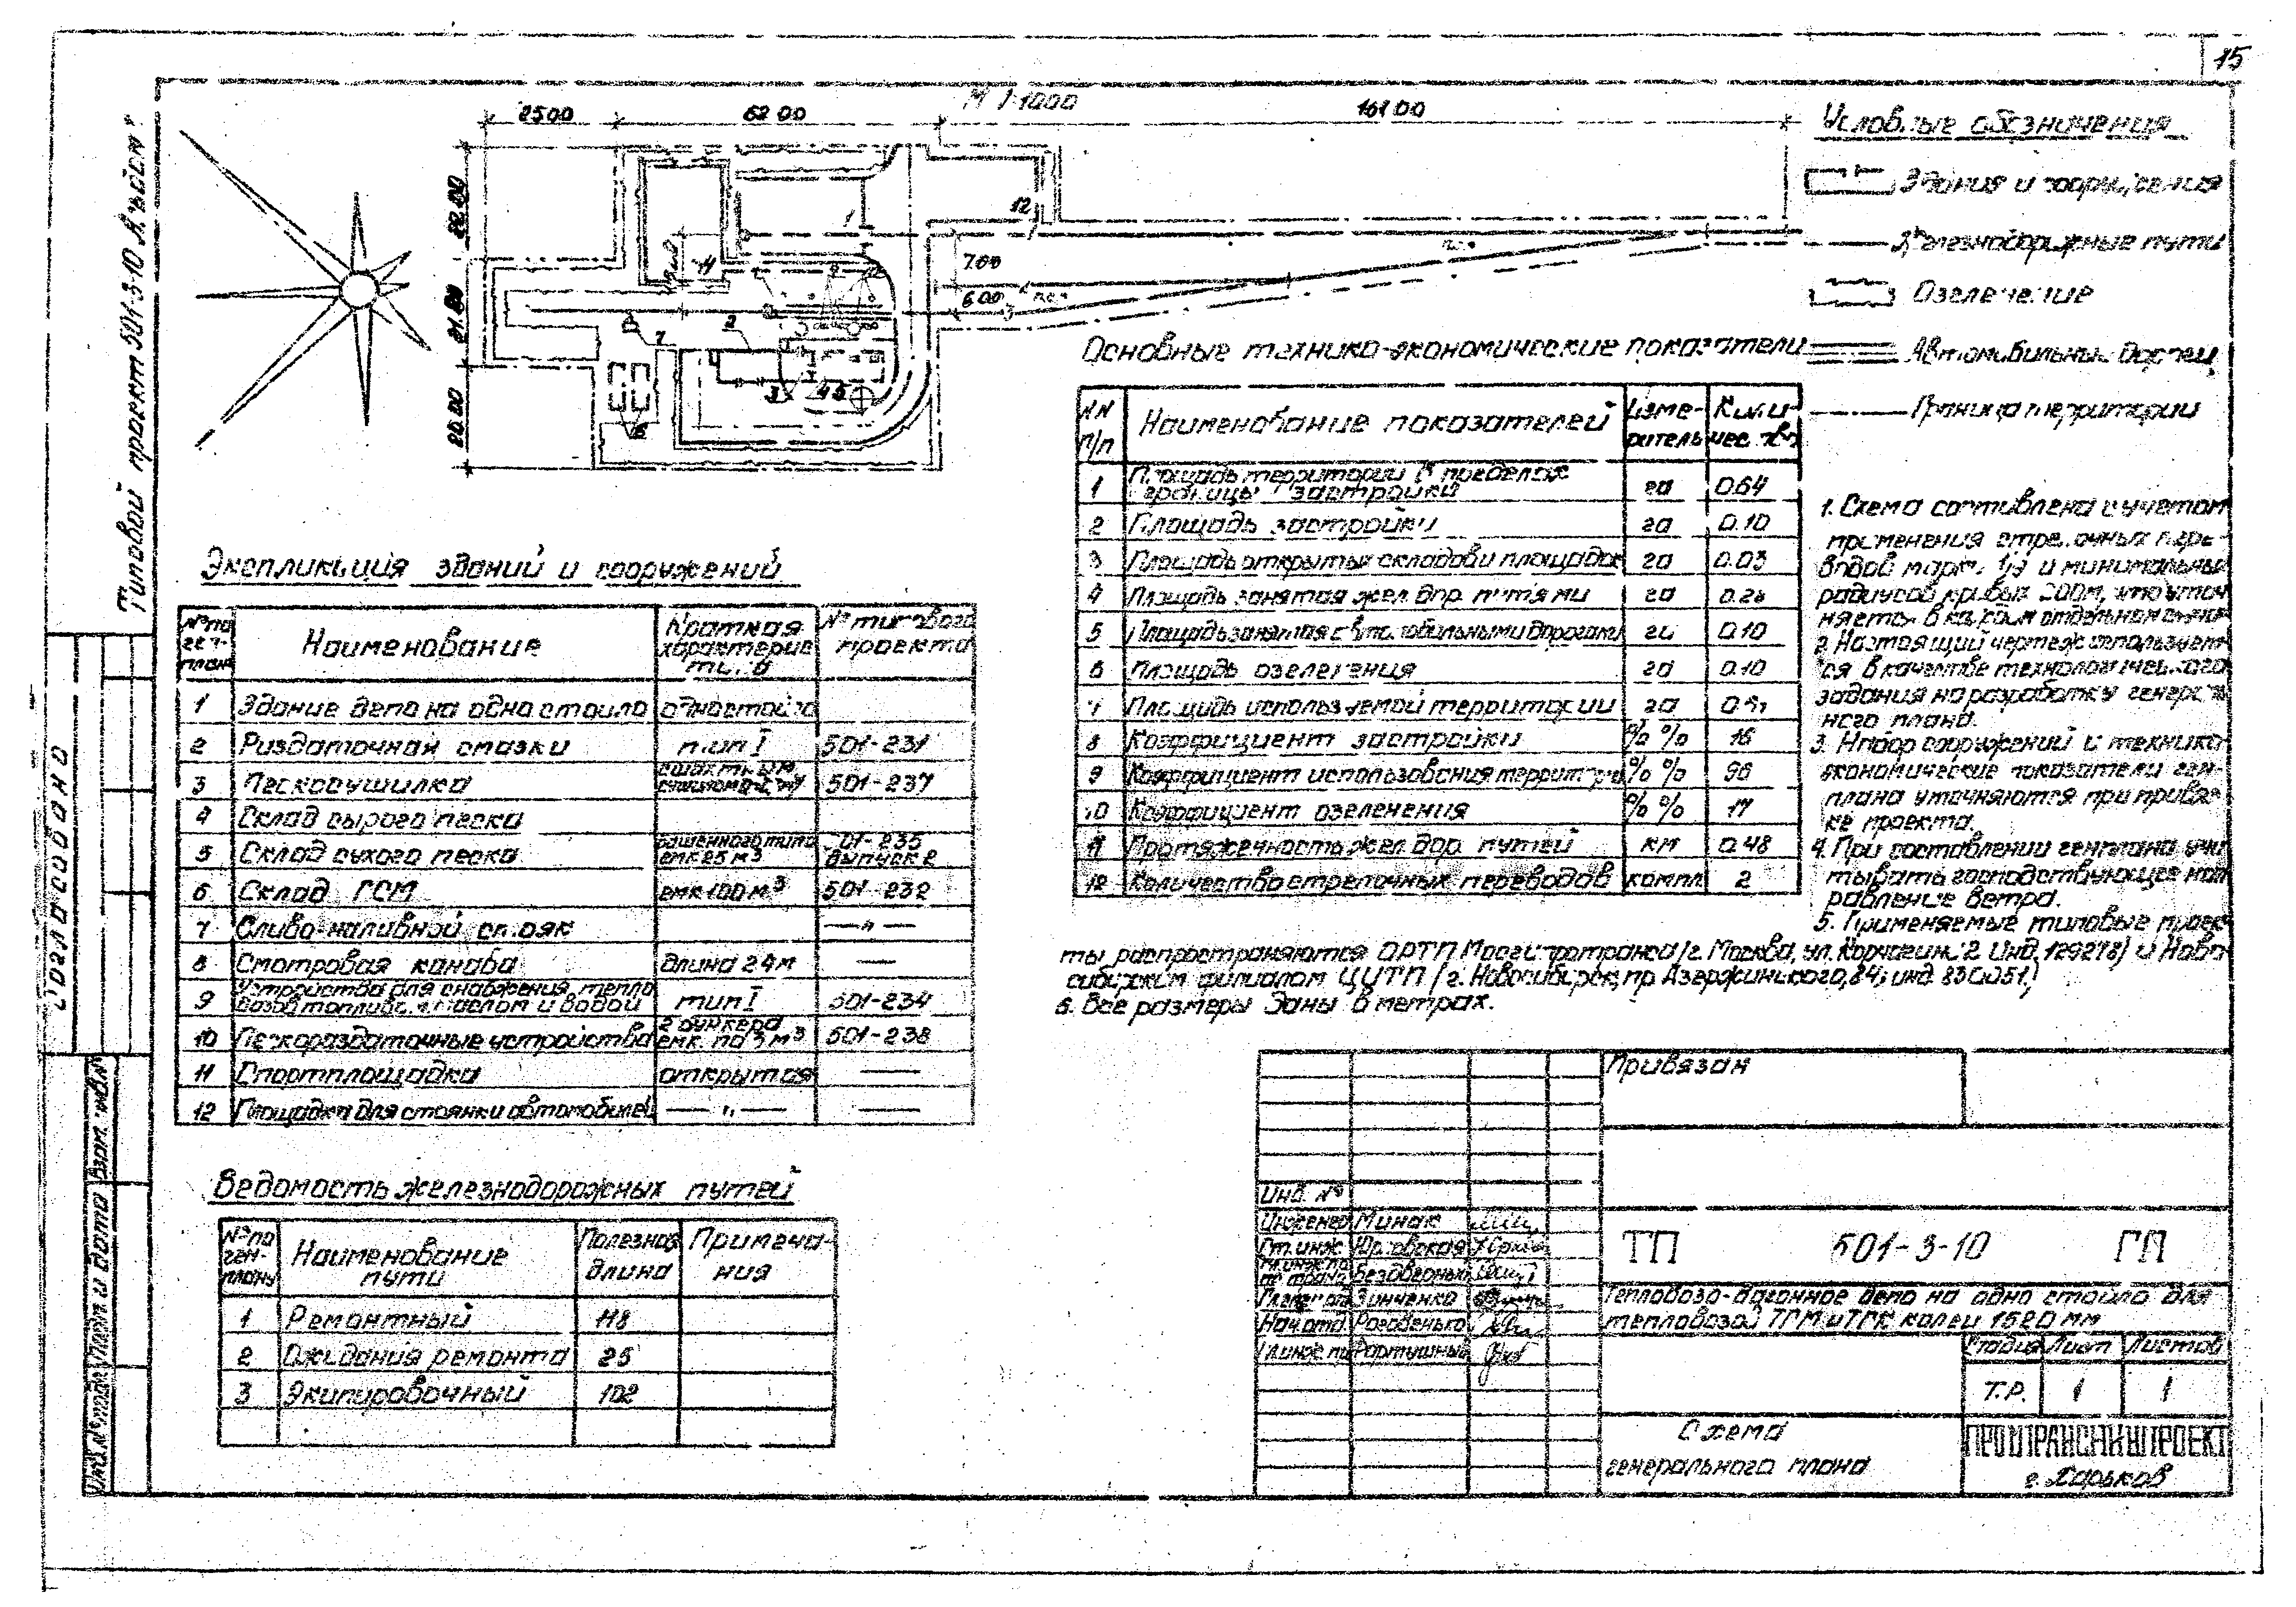 15
Типовой проект 501-3-10
М 1:1000
25.00 62.00 161.00
22.00
21.00
20.00
7.00
6.00
12
1
11
2
7
3
4 5
6
Условные обозначения
Здания и сооружения
Железнодорожные пути
Озеленение
Автомобильн. дороги
Граница территории
Основные технико-экономические показатели
NN п/п Наименование показателей Измеритель Количество
1 Площадь территории в пределах границы застройки га 0.64
2 Площадь застройки га 0.10
3 Площадь открытых складов и площадок га 0.03
4 Площадь занятая жел. дор. путями га 0.28
5 Площадь занятая автомобильными дорогами га 0.10
6 Площадь озеленения га 0.10
7 Площадь используемой территории га
8 Коэффициент застройки % % 16
9 Коэффициент использования территории % %
10 Коэффициент озеленения % % 17
11 Протяженность жел. дор. путей км 0.48
12 Количество стрелочных переводов компл. 2
1. Схема составлена с учетом
применения стрелочных пере-
водов марк. 1/9 и минимальных
радиусов кривых 200м, что уточ-
няется в каждом отдельном случае
2. Настоящий чертеж использует-
ся в качестве технологического
задания на разработку генераль-
ного плана.
3. Набор сооружений и технико-
экономические показатели ген-
плана уточняются при привяз-
ке проекта.
4. При составлении генплана учи-
тывать господствующее нап-
равление ветра.
5. Применяемые типовые проек-
ты распространяются ОРТП Мосгипротранса /г. Москва, ул. 2 инд. 129278/ и Ново-
сибирским филиалом ЦИТП /г. Новосибирск, пр. Дзержинского, 84, инд. 630051/
6. Все размеры даны в метрах.
Экспликация зданий и сооружений
№ по генплану Наименование Краткая характеристика № типового проекта
1 Здание депо на одно стойло
2 Раздаточная смазки тип I 501-231
3 Пескосушилка 501-237
4 Склад сырого песка
5 Склад сухого песка башенного типа емк 25 м³ 501-235 выпуск 2
6 Склад ГСМ емк 100 м³ 501-232
7 Сливо-наливной стояк —"—
8 Смотровая канава длина 24м —
9 Устройства для снабжения тепловозов топливом, маслом и водой тип I 501-234
10 Пескораздаточные устройства 2 бункера емк. по 3 м³ 501-238
11 Спортплощадка открытая —
12 Площадка для стоянки автомобилей —"— —
Ведомость железнодорожных путей
№ по генплану Наименование пути Полезная длина Примечания
1 Ремонтный 118
2 Ожидания ремонта 25
3 Экипировочный 102
Согласовано
Инв. № подл. Подп. и дата Взам. инв. №
Привязан
Инв. №
Инженер Минак
Ст. инж.
Зинченко
Нач. отд.
ТП 501-3-10 ГП
Тепловозо-вагонное депо на одно стойло для
тепловозов ТГМ и ТГК колеи 1520 мм
Стадия Лист Листов
Т.Р. 1 1
Схема
генерального плана
ПРОМТРАНСНИИПРОЕКТ
г. Харьков